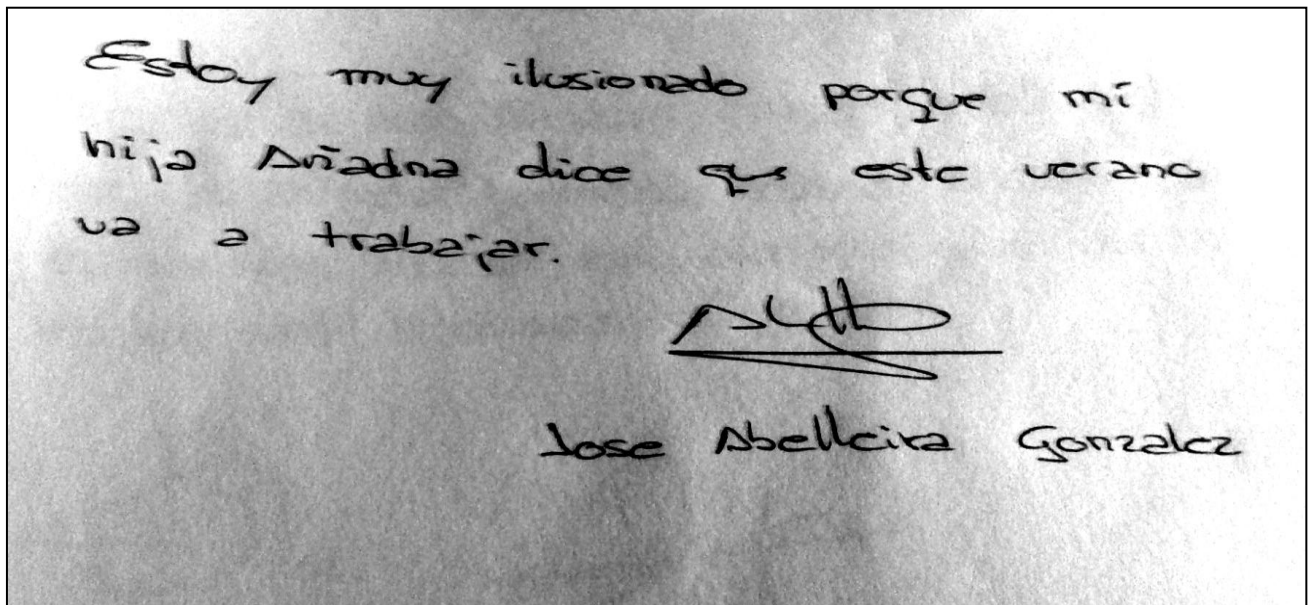 Estoy muy ilusionado porque mi
hija Ariadna dice que este verano
va a trabajar.
Jose Abelleira Gonzalez